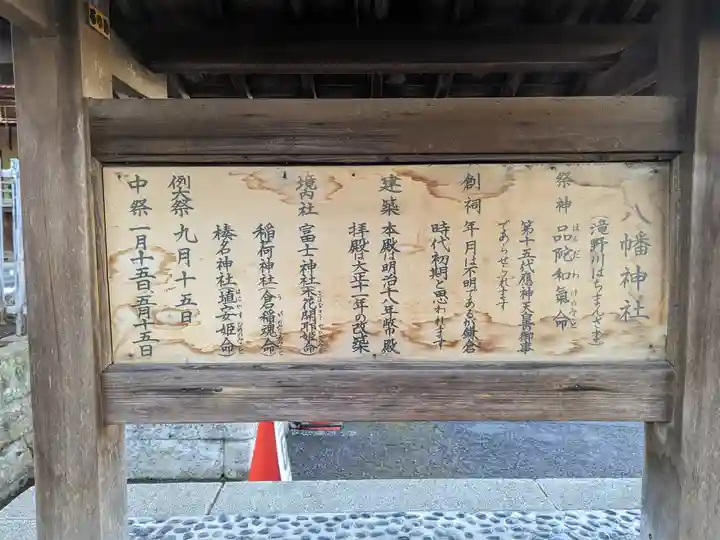 八幡神社
(滝野川はちまんさま)
祭神 品陀和氣命
ほんだわけのみこと
第十五代應神天皇の御事
であらせられます
創祠 年月は不明であるが鎌倉
時代初期と思われます
建築 本殿は明治十八年
拝殿は大正十一年の改築
境内社 富士神社 木花開耶姫命
稲荷神社 倉稲魂命
榛名神社 埴安姫命
例大祭 九月十五日
中祭 一月十五日、五月十五日